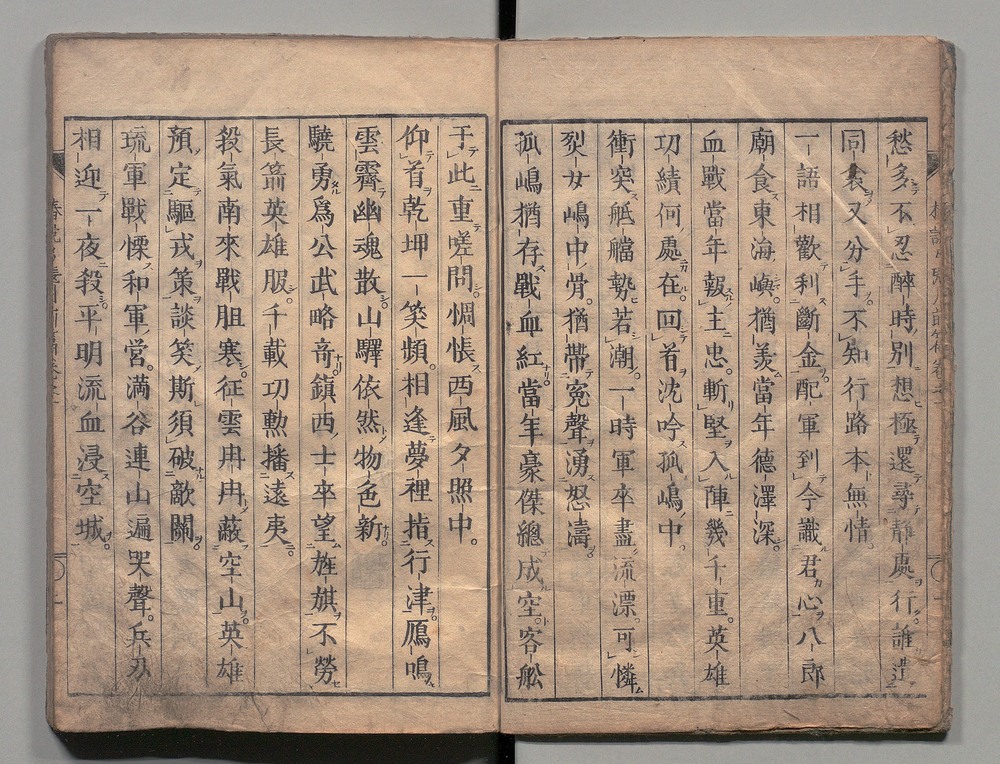 愁多不忍醉時別想極還尋靜處行誰遣
同衾又分手不知行路本無情
一語相歡利斷金配軍到今識君心八郎
廟食東海嶼猶羨當年德澤深
血戰當年報主忠斬堅入陣幾千重英雄
功績何處在回首沈吟孤嶋中
衝突艋艡勢若潮一時軍卒盡流漂可憐
烈女嶋中骨猶帶冤聲湧怒濤
孤嶋猶存戰血紅當年豪傑總成空客舩
于此重嗟問惆悵西風夕照中
仰首乾坤一笑頻相逢夢裡指行津鴈鳴
雲霽幽魂散山驛依然物色新
驍勇爲公武略奇鎮西士卒望旌旗不勞
長箭英雄服千載功勲播遠夷
殺氣南來戰胆寒征雲冉冉蔽空山英雄
預定驅戎策談笑斯須破敵關
琉軍戰慄和軍営滿谷連山遍哭聲兵刃
相迎一夜殺平明流血浸空城